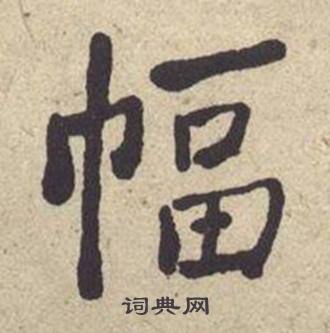 幅
词典网